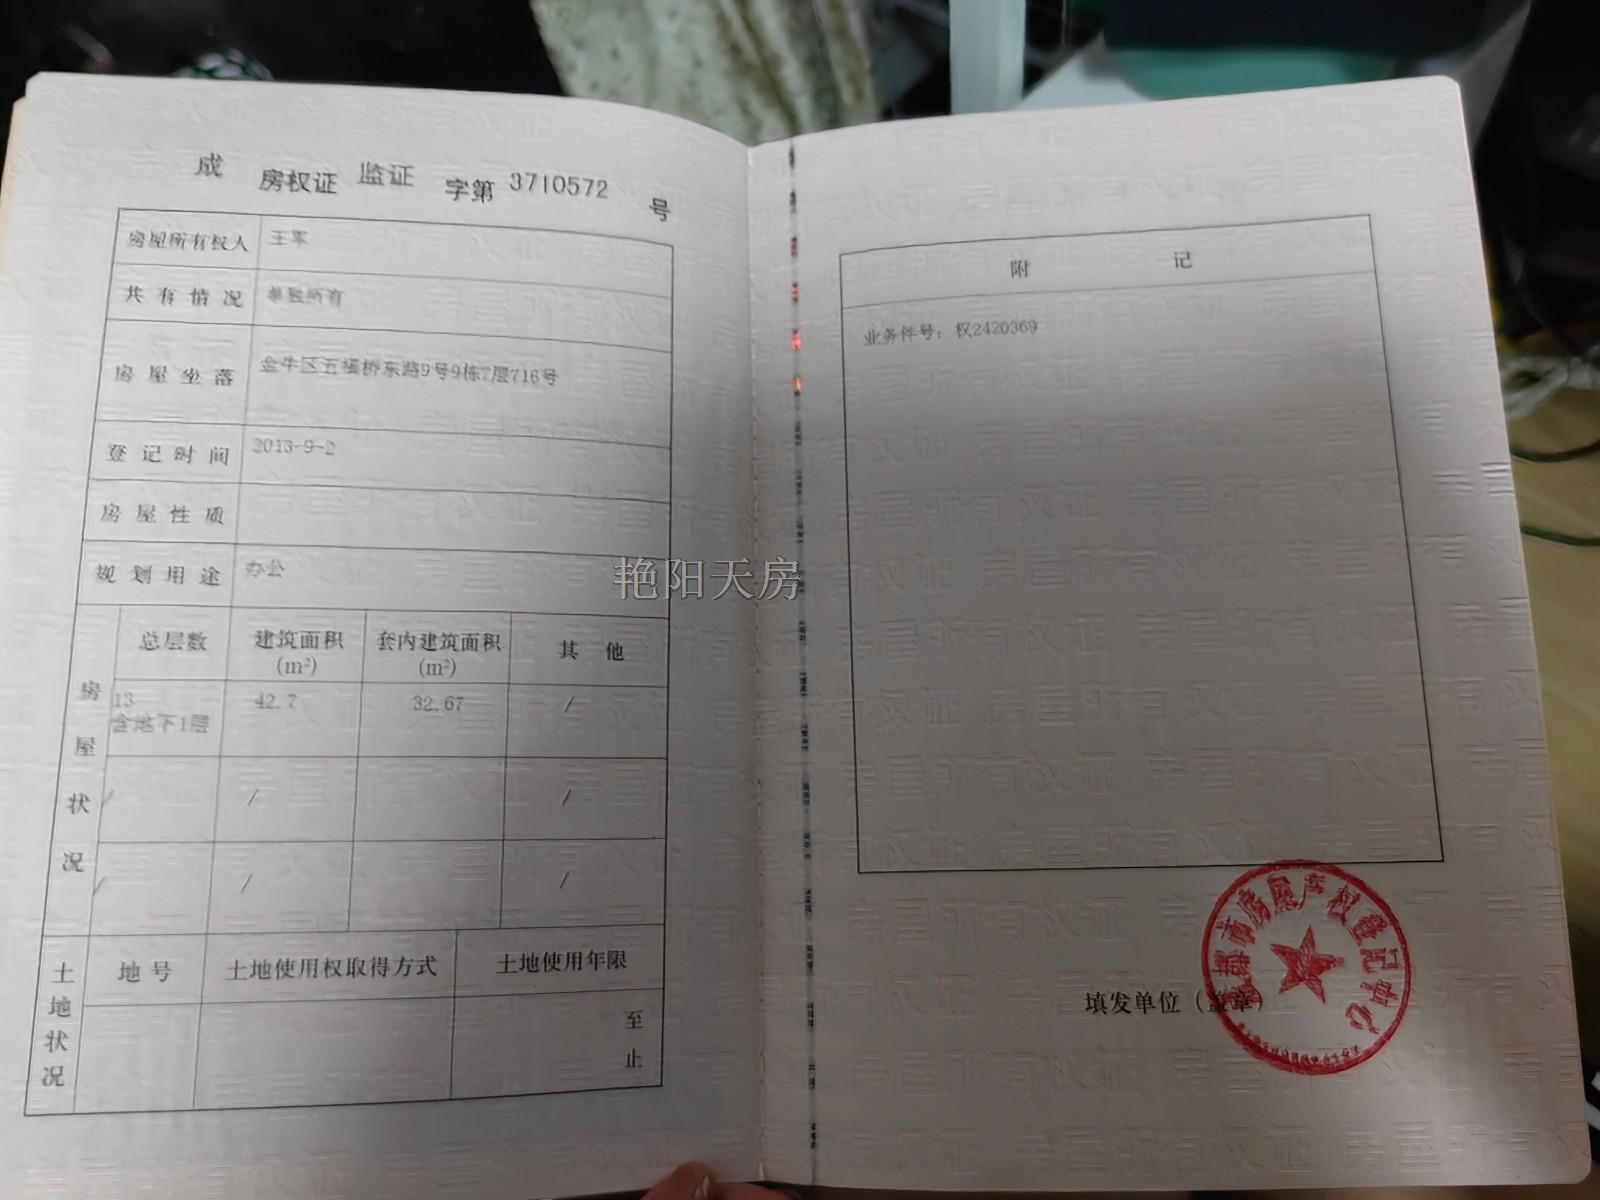 成 房权证 监证 字第 3710572 号
房屋所有权人 王军
共有情况 单独所有
房屋坐落 金牛区五福桥东路9号9栋7层716号
登记时间 2013-9-2
房屋性质
规划用途 办公
房屋状况
总层数 建筑面积(m²) 套内建筑面积(m²) 其他
13 42.7 32.67 /
含地下1层
/ / /
/ / /
土地状况
地号 土地使用权取得方式 土地使用年限
至
止
附记
业务件号：权2420369
填发单位（盖章）
成都市房屋产权登记中心
艳阳天房